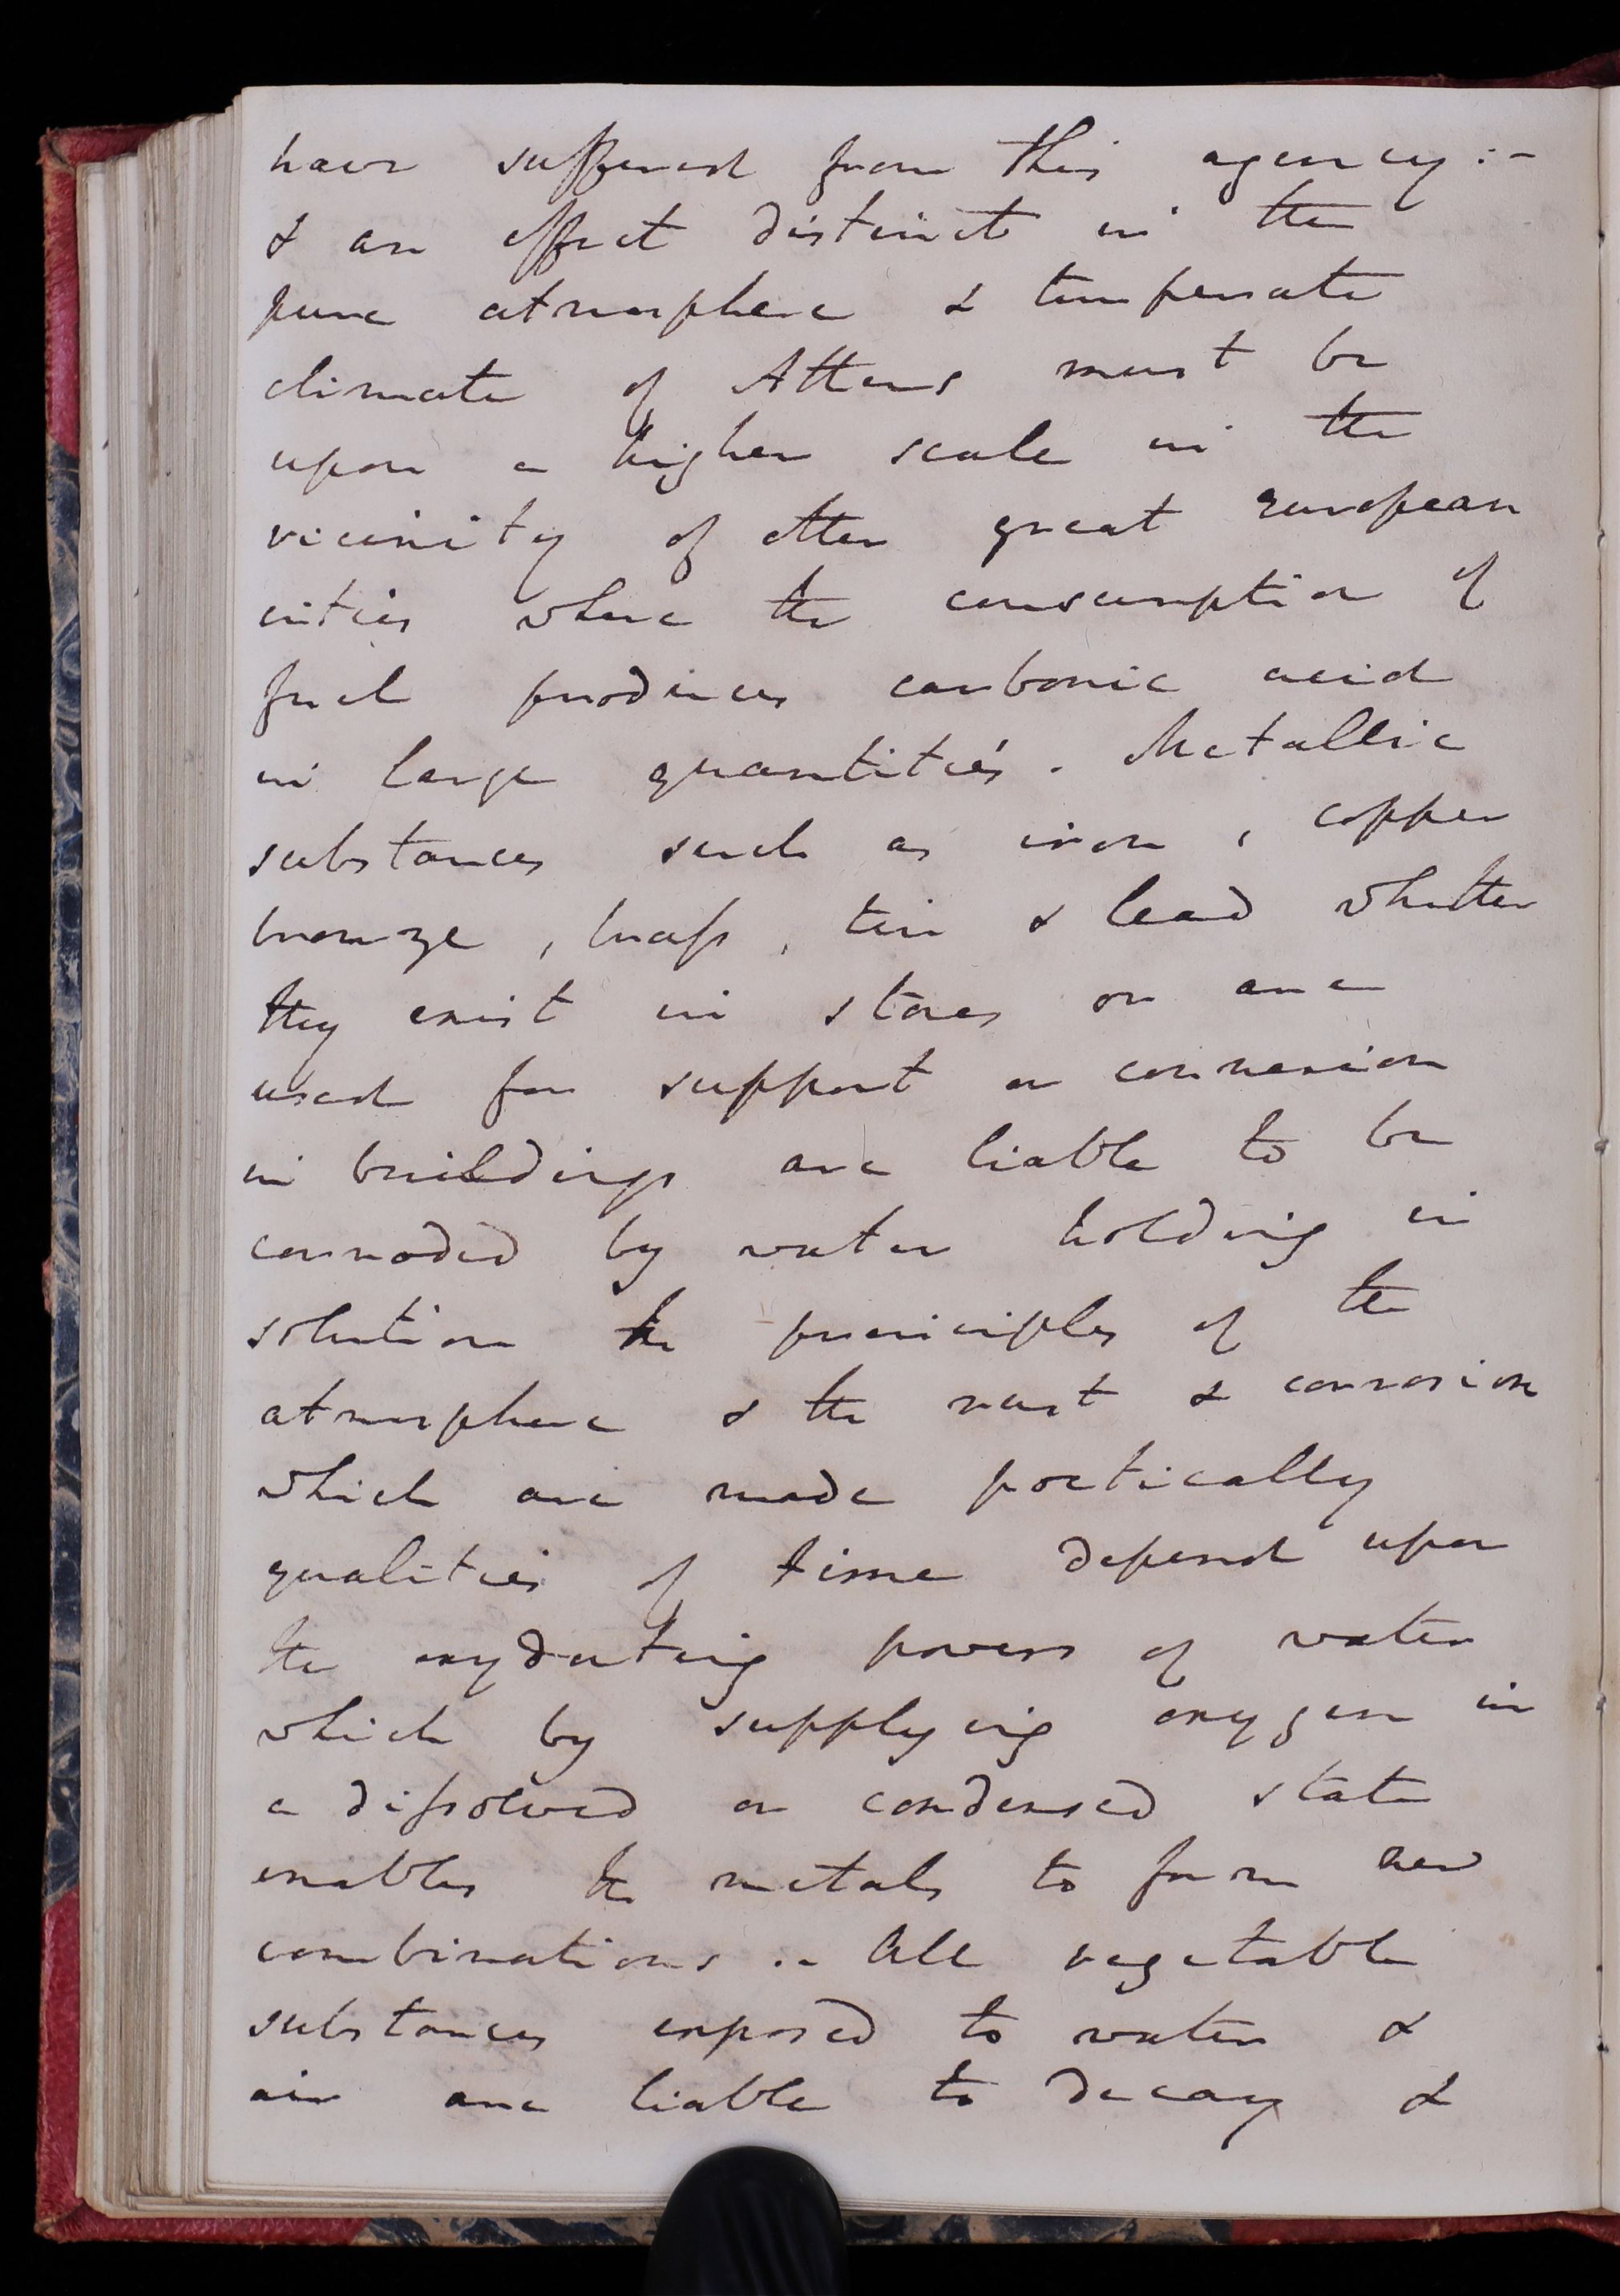 have suffered from this agency :-
& an effect distinct in the
pure atmosphere & temperate
climate of Athens must be
upon a higher scale in the
vicinity of other great European
cities where the consumption of
fuel produces carbonic acid
in large quantities. Metallic
substances such as iron, copper
bronze, brass, tin & lead whether
they exist in stones or are
used for support or connexion
in buildings are liable to be
corroded by water holding in
solution the principles of the
atmosphere & the rust & corrosion
which are made poetically
qualities of time depend upon
the oxydating powers of water
which by supplying oxygen in
a dissolved or condensed state
enables the metals to form new
combinations .- All vegetable
substances exposed to water &
air are liable to decay &